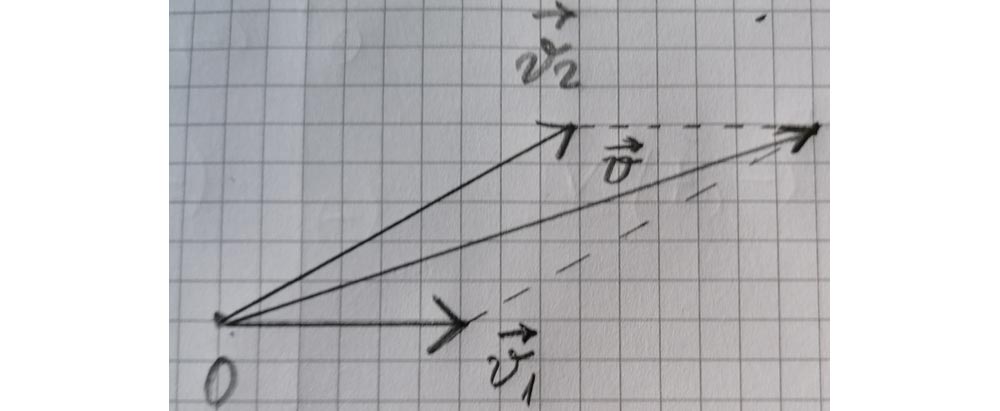 v⃗₂
v⃗
v⃗₁
0